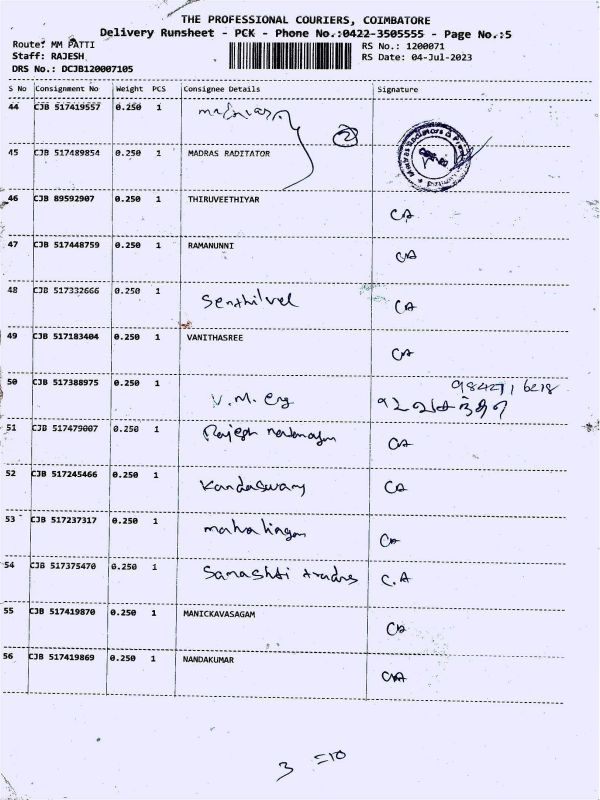 THE PROFESSIONAL COURIERS, COIMBATORE
Delivery Runsheet - PCK - Phone No.:0422-3505555 - Page No.:5
Route: MM PATTI RS No.: 1200071
Staff: RAJESH RS Date: 04-Jul-2023
DRS No.: DCJB120007105
S No Consignment No Weight PCS Consignee Details Signature
44 CJB 517419557 0.250 1
②
45 CJB 517489854 0.250 1 MADRAS RADITATOR
46 CJB 89592907 0.250 1 THIRUVEETHIYAR CA
47 CJB 517448759 0.250 1 RAMANUNNI CA
48 CJB 517332666 0.250 1 Senthilvel CA
49 CJB 517183404 0.250 1 VANITHASREE CA
50 CJB 517388975 0.250 1 V.M. Eng
51 CJB 517479007 0.250 1 Rajesh CA
52 CJB 517245466 0.250 1 Kandaswamy CA
53 CJB 517237317 0.250 1 mahalingam CA
54 CJB 517375470 0.250 1 Samashti traders C.A
55 CJB 517419870 0.250 1 MANICKAVASAGAM CA
56 CJB 517419869 0.250 1 NANDAKUMAR CA
3 =10